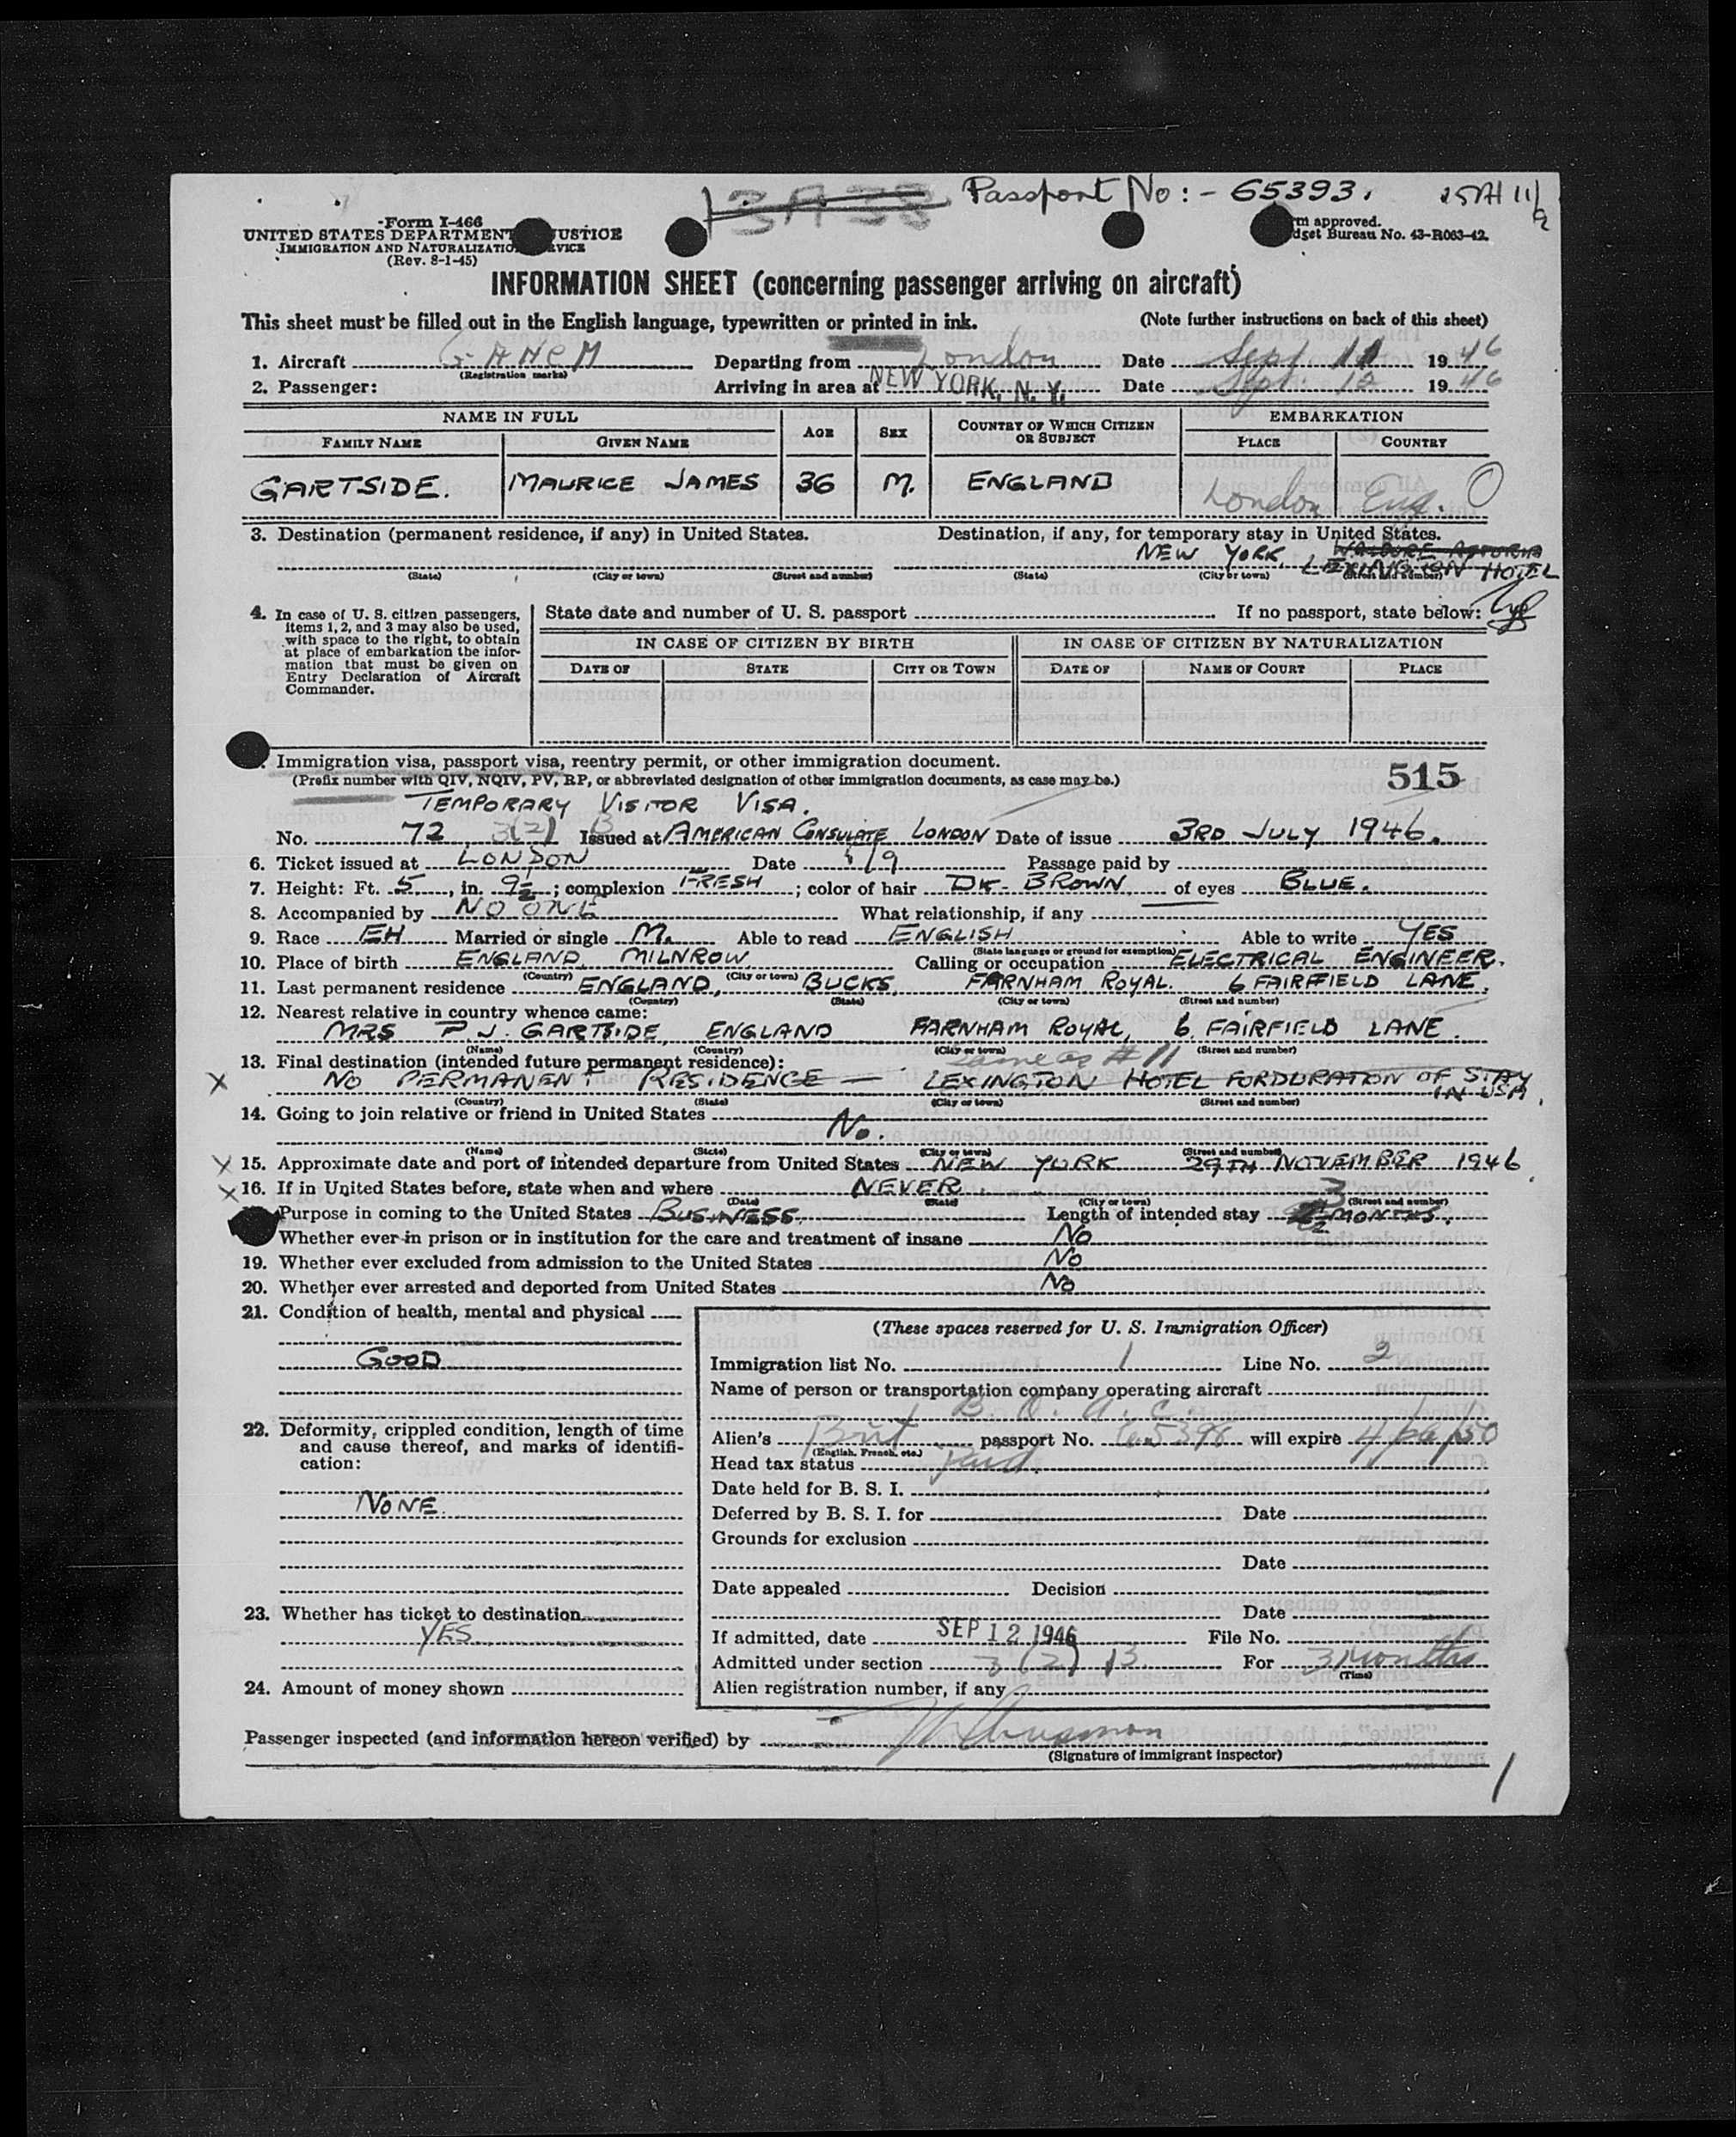 Passport No:- 65393.
Form I-466
UNITED STATES DEPARTMENT JUSTICE
IMMIGRATION AND NATURALIZATIO RVICE
(Rev. 8-1-45)
rm approved.
dget Bureau No. 43-R063-42.
INFORMATION SHEET (concerning passenger arriving on aircraft)
This sheet must be filled out in the English language, typewritten or printed in ink. (Note further instructions on back of this sheet)
1. Aircraft G-AHEM Departing from London Date Sept 11 1946
(Registration marks)
2. Passenger: Arriving in area at NEW YORK, N. Y. Date Sept. 12 1946
NAME IN FULL AGE SEX COUNTRY OF WHICH CITIZEN OR SUBJECT EMBARKATION
FAMILY NAME GIVEN NAME PLACE COUNTRY
GARTSIDE. MAURICE JAMES 36 M. ENGLAND London Eng.
3. Destination (permanent residence, if any) in United States. Destination, if any, for temporary stay in United States.
WALDORF ASTORIA
NEW YORK, LEXINGTON HOTEL
(State) (City or town) (Street and number) (State) (City or town) (Street and number)
4. In case of U. S. citizen passengers, items 1, 2, and 3 may also be used, with space to the right, to obtain at place of embarkation the information that must be given on Entry Declaration of Aircraft Commander.
State date and number of U. S. passport If no passport, state below:
IN CASE OF CITIZEN BY BIRTH IN CASE OF CITIZEN BY NATURALIZATION
DATE OF STATE CITY OR TOWN DATE OF NAME OF COURT PLACE
Immigration visa, passport visa, reentry permit, or other immigration document.
(Prefix number with QIV, NQIV, PV, RP, or abbreviated designation of other immigration documents, as case may be.) 515
TEMPORARY VISITOR VISA.
No. 72 3(2) B Issued at AMERICAN CONSULATE LONDON Date of issue 3RD JULY 1946.
6. Ticket issued at LONDON Date /9 Passage paid by
7. Height: Ft. 5, in. 9½; complexion FRESH; color of hair DK- BROWN of eyes BLUE.
8. Accompanied by NO ONE What relationship, if any
9. Race EH Married or single M. Able to read ENGLISH Able to write YES
(State language or ground for exemption)
10. Place of birth ENGLAND MILNROW Calling or occupation ELECTRICAL ENGINEER.
(Country) (City or town)
11. Last permanent residence ENGLAND, BUCKS, FARNHAM ROYAL. 6 FAIRFIELD LANE.
(Country) (State) (City or town) (Street and number)
12. Nearest relative in country whence came:
MRS P. J. GARTSIDE, ENGLAND FARNHAM ROYAL, 6. FAIRFIELD LANE.
(Name) (Country) (City or town) (Street and number)
13. Final destination (intended future permanent residence): same as #11
X NO PERMANENT RESIDENCE — LEXINGTON HOTEL FOR DURATION OF STAY IN USA.
(Country) (State) (City or town) (Street and number)
14. Going to join relative or friend in United States
No.
(Name) (State) (City or town) (Street and number)
X 15. Approximate date and port of intended departure from United States NEW YORK 29TH NOVEMBER 1946
X 16. If in United States before, state when and where NEVER.
(Date) (State) (City or town) (Street and number)
Purpose in coming to the United States BUSINESS. Length of intended stay 3 MONTHS.
Whether ever in prison or in institution for the care and treatment of insane No
19. Whether ever excluded from admission to the United States No
20. Whether ever arrested and deported from United States No
21. Condition of health, mental and physical
GOOD
22. Deformity, crippled condition, length of time and cause thereof, and marks of identification:
NONE.
23. Whether has ticket to destination
YES
24. Amount of money shown
(These spaces reserved for U. S. Immigration Officer)
Immigration list No. 1 Line No. 2
Name of person or transportation company operating aircraft
B. O. A. C.
Alien's Brit passport No. 65398 will expire 4/26/50
(English, French, etc.)
Head tax status Paid.
Date held for B. S. I.
Deferred by B. S. I. for Date
Grounds for exclusion
Date
Date appealed Decision
Date
If admitted, date SEP 12 1946 File No.
Admitted under section 3(2) B For 3 Months
(Time)
Alien registration number, if any
Passenger inspected (and information hereon verified) by
(Signature of immigrant inspector)
1